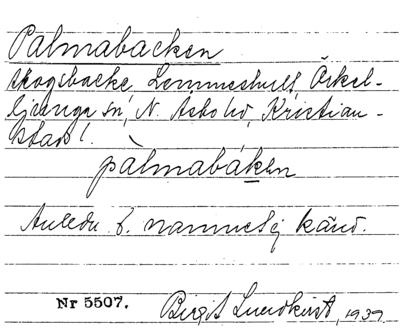 Palmabacken
skogsbacke, Lemmeshult, Örkel-
ljunga sn, N. Åsbo hd, Kristian-
stads l.
pàlmabáken
Anledn. t. namnet ej känd.
Nr 5507. Birgit Lundkvist, 1939